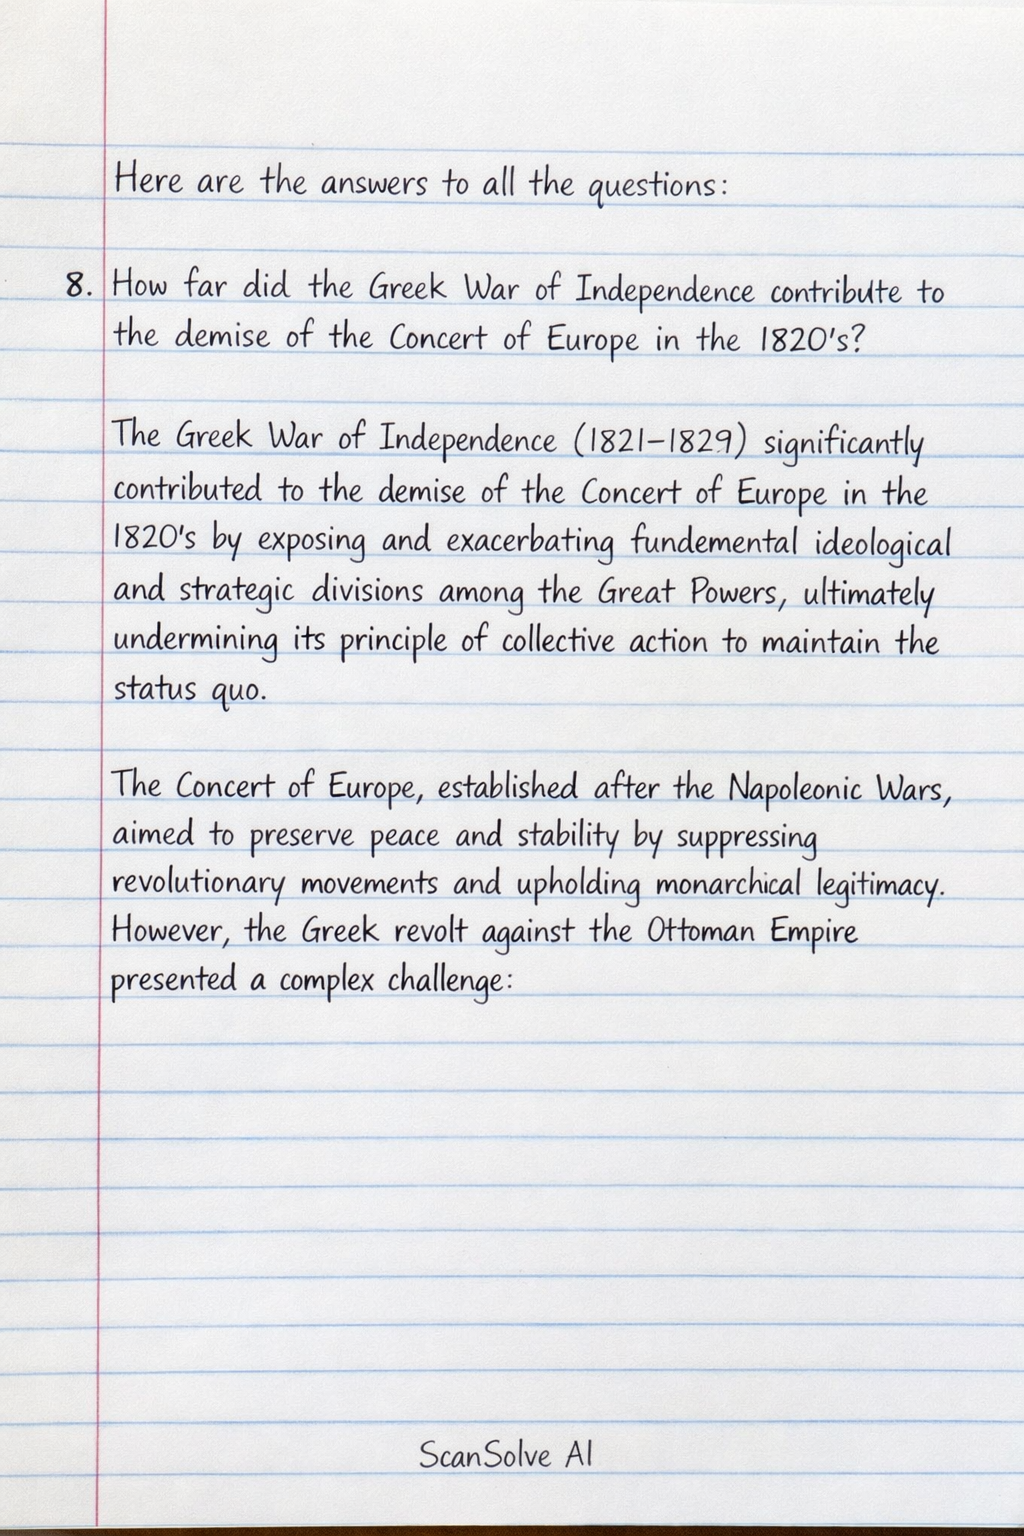 Here are the answers to all the questions:
8. How far did the Greek War of Independence contribute to
the demise of the Concert of Europe in the 1820's?
The Greek War of Independence (1821–1829) significantly
contributed to the demise of the Concert of Europe in the
1820's by exposing and exacerbating fundemental ideological
and strategic divisions among the Great Powers, ultimately
undermining its principle of collective action to maintain the
status quo.
The Concert of Europe, established after the Napoleonic Wars,
aimed to preserve peace and stability by suppressing
revolutionary movements and upholding monarchical legitimacy.
However, the Greek revolt against the Ottoman Empire
presented a complex challenge:
ScanSolve AI